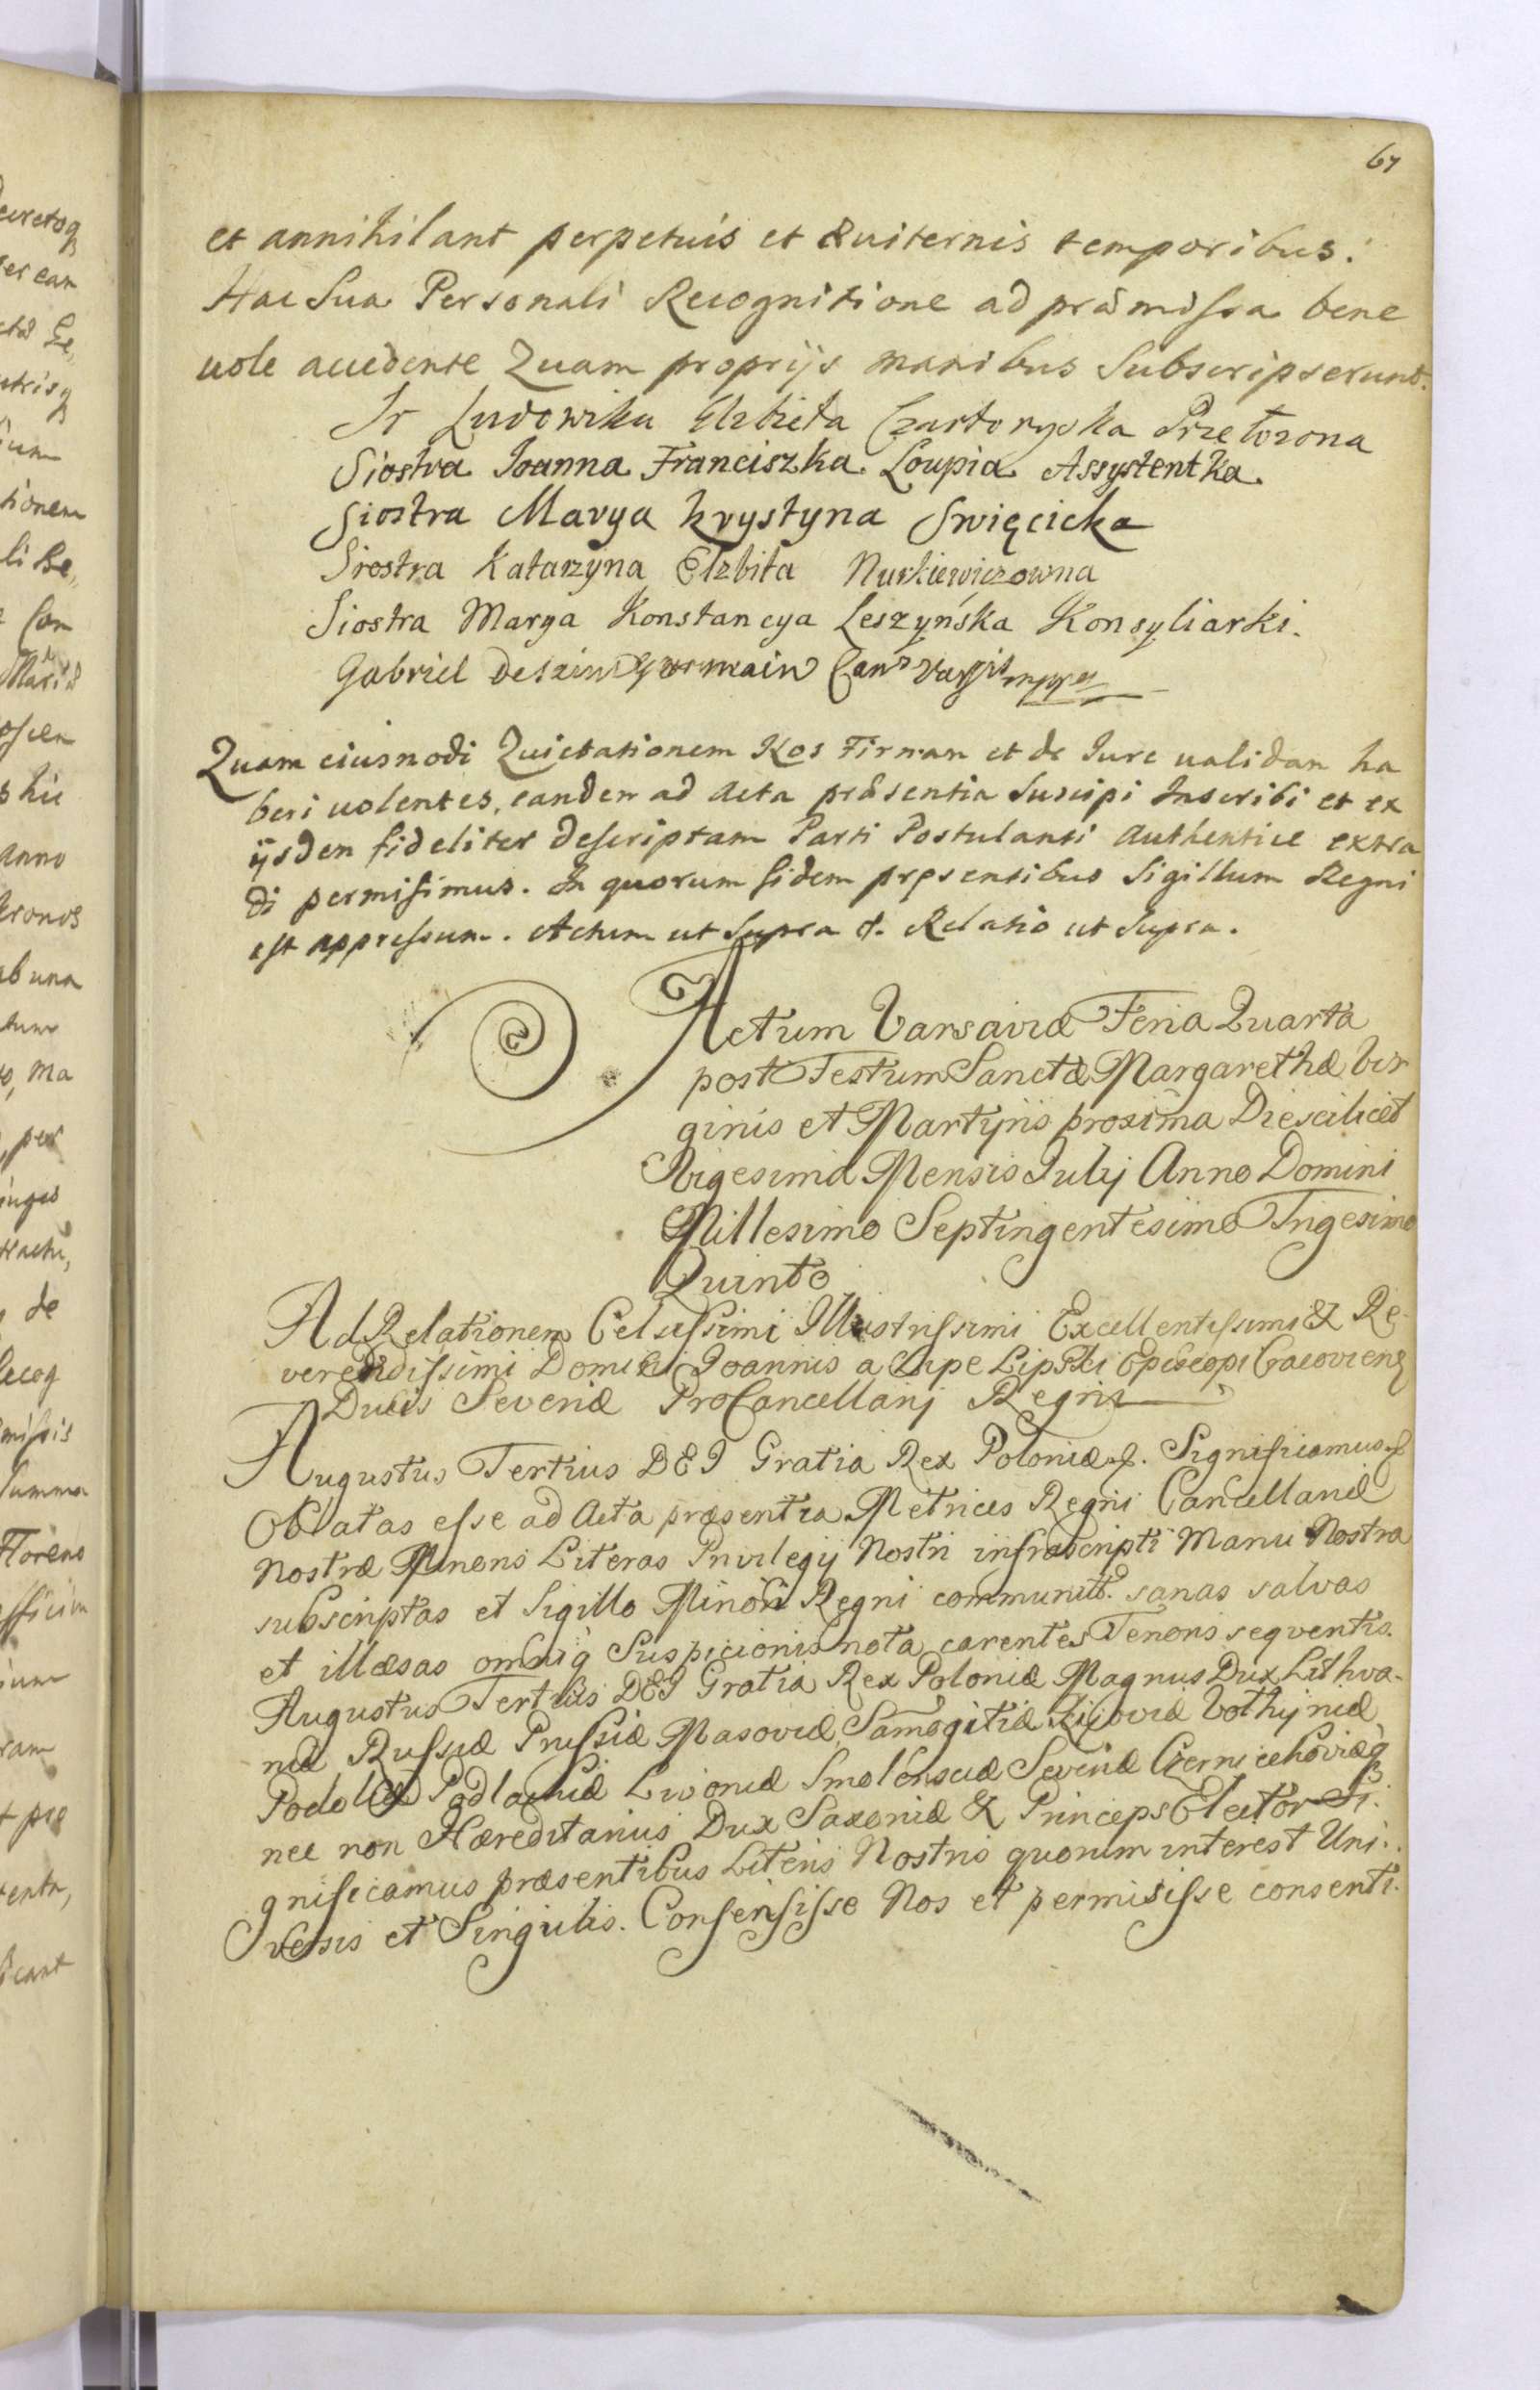 67
et annihilant perpetuis et æuiternis temporibus.
Hac Sua Personali Recognitione ad præmissa bene
uole accedente Quam proprijs manibus Subscripserunt.
Sr Ludowika Elzbieta Czartoryska Przełozona
Siostra Joanna Franciszka Loupia Assystentka.
Siostra Marya Krystyna Swięcicka
Siostra Katarzyna Elzbita Nurkiewiczowna
Siostra Marya Konstancya Leszyńska Konsyliarki.
Gabriel de Germain Can
Quam eiusmodi Quietationem Nos Firmam et de Jure ualidam ha
beri uolentes, eandem ad Acta præsentia Suscipi Inscribi et ex
ijsdem fideliter descriptam Parti Postulanti Authentice extra
di permisimus. In quorum fidem pręsentibus Sigillum Regni
est appressum. Actum ut Supra &. Relatio ut Supra.
Actum Varsaviæ Feria Quarta
post Festum Sanctæ Margarethæ Vir
ginis et Martyris proxima Die scilicet
Vigesima Mensis Julij Anno Domini
Millesimo Septingentesimo Trigesimo
Quinto
Ad Relationem Celsissimi Illustrissimi Excellentissimi & Re-
verendissimi Domini Joannis a Lipe Lipski Episcopi Cacoviens
Ducis Severiæ ProCancellarij Regni
Augustus Tertius DEI Gratia Rex Poloniæ &. Significamus &
Oblatas esse ad Acta præsentia Metrices Regni Cancellariæ
Nostræ Minoris Literas Privilegij Nostri infrascripti Manu Nostra
subscriptas et Sigillo Minori Regni communit. sanas salvas
et illæsas omniq Suspicionis nota carentes Tenoris seqventis.
Augustus Tertius DEI Gratia Rex Poloniæ Magnus Dux Lithva-
niæ Russiæ Prussiæ Masoviæ Samogitiæ Kijoviæ Volhyniæ
Podoliæ Podlachiæ Livoniæ Smolensciæ Severiæ Czerniechoviæq
nec non Hæreditarius Dux Saxoniæ & Princeps Elector Si-
gnificamus præsentibus Literis Nostris quorum interest Uni-
versis et Singulis. Consensisse Nos et permisisse consenti-